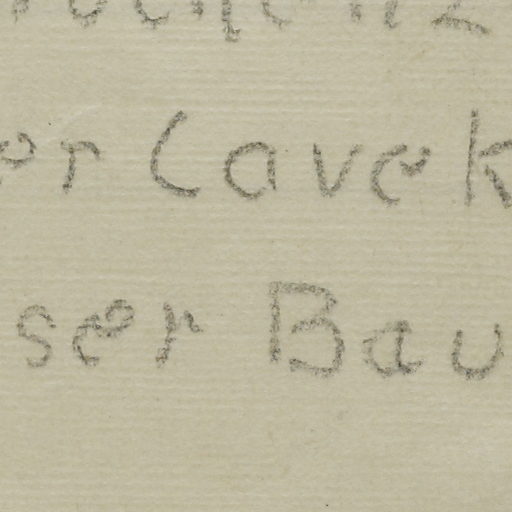 er Cavek
ser Bau